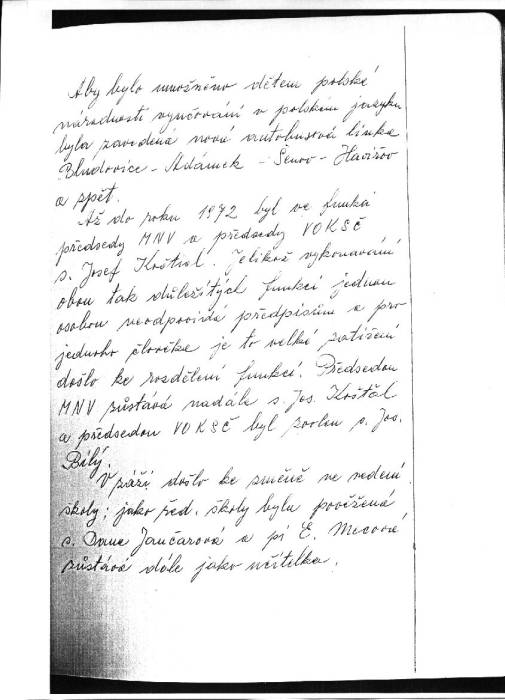 Aby bylo umožněno dětem polské
národnosti vyučování v polském jazyku
byla zavedena nová autobusová linka
Bludovice - Adámek - Šenov - Havířov
a zpět.
Až do roku 1972 byl ve funkci
předsedy MNV a předsedy VOKSČ
s. Josef Košťál. Jelikož vykonávání
obou tak důležitých funkcí jednou
osobou neodpovídá předpisům a pro
jednoho člověka je to velké zatížení
došlo ke rozdělení funkcí. Předsedou
MNV zůstává nadále s. Jos. Košťál
a předsedou VOKSČ byl zvolen s. Jos.
Bílý.
V září došlo ke změně ve vedení
školy; jako řed. školy byla pověřena
s. Dana Jančarová a pí E.
zůstává dále jako učitelka.